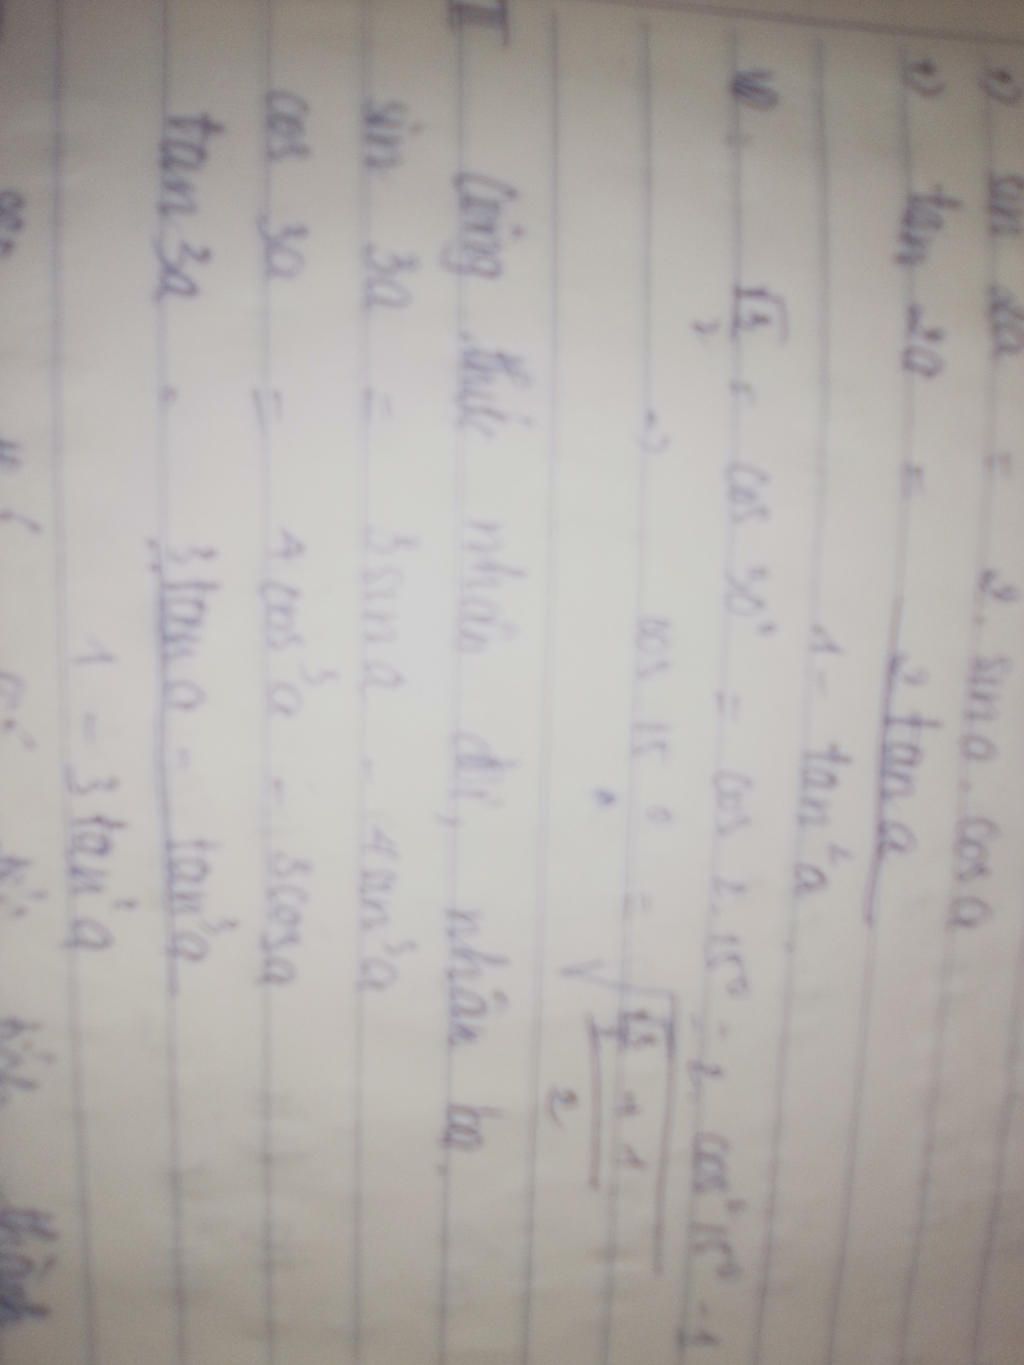 sin 2a = 2. sin a. cos a
tan 2a = 2 tan a
1 - tan² a
VD: √3/2 = cos 30° = cos 2.15° = 2. cos² 15° - 1
→ cos 15° = √ √3/2 + 1
2
II Công thức nhân đôi, nhân ba
sin 3a = 3 sin a - 4 sin³ a
cos 3a = 4 cos³ a - 3 cos a
tan 3a = 3 tan a - tan³ a
1 - 3 tan² a